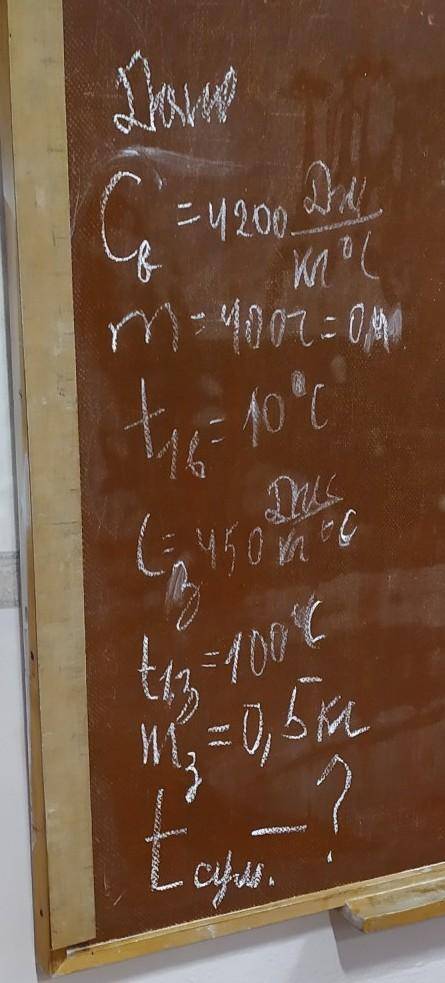 Дано
Cв = 4200 Дж/кг°C
m = 400г = 0,4
t1в = 10°C
C з = 450 Дж/кг°C
t1з = 100°C
mз = 0,5 кг
tсум. - ?